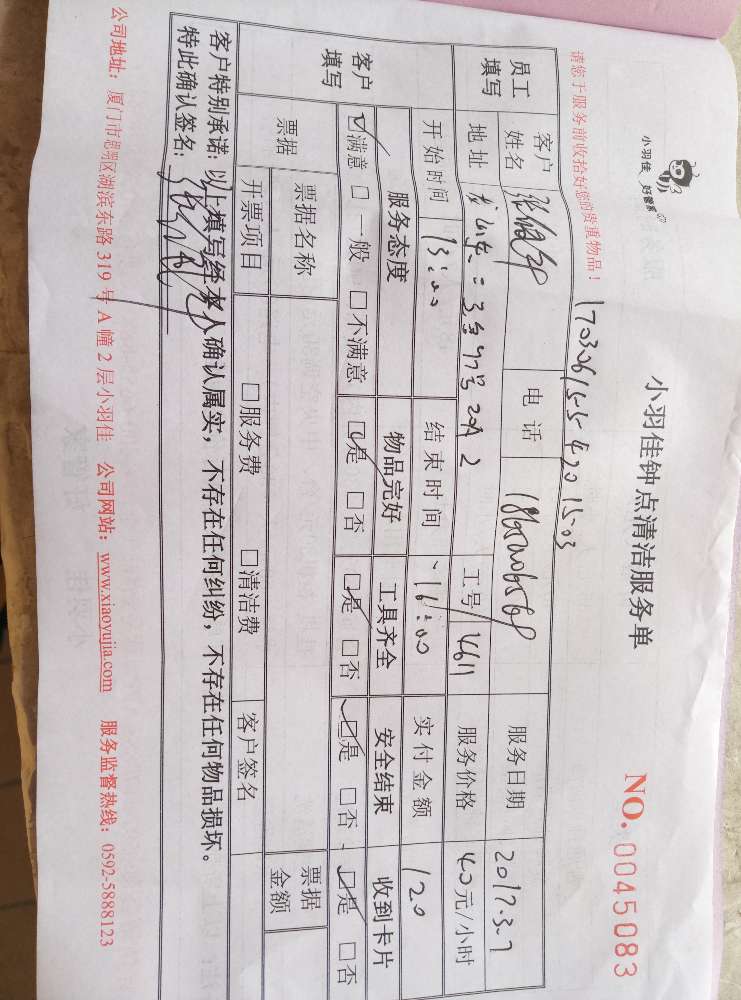 小羽佳 好管家
小羽佳钟点清洁服务单
NO. 0045083
请您于服务前收拾好您的贵重物品！
员工填写
客户姓名
电话
服务日期 2017.3.7
地址
工号 4611
服务价格 40元/小时
开始时间 13:00
结束时间 16:00
实付金额 120
客户填写
服务态度 物品完好 工具齐全 安全结束 收到卡片
☑满意 □一般 □不满意 ☑是 □否 ☑是 □否 ☑是 □否 ☑是 □否
票据
票据名称
票据金额
开票项目 □服务费 □清洁费 客户签名
客户特别承诺：以上填写经本人确认属实，不存在任何纠纷，不存在任何物品损坏。
特此确认签名：
公司地址：厦门市思明区湖滨东路 319 号 A 幢 2 层小羽佳 公司网站：www.xiaoyujia.com 服务监督热线：0592-5888123